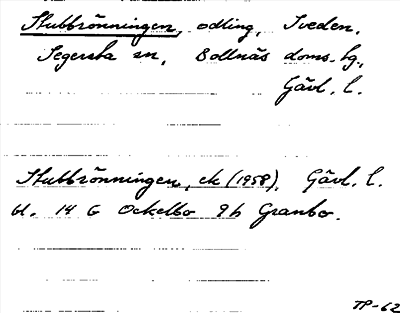 Stubbrönningen, odling, Sveden,
Segersta sn, Bollnäs doms. hg.,
Gävl. l.
Stubbrönningen, ek (1958), Gävl. l.
bl. 14 G Ockelbo 9h Granbo.
TP-62